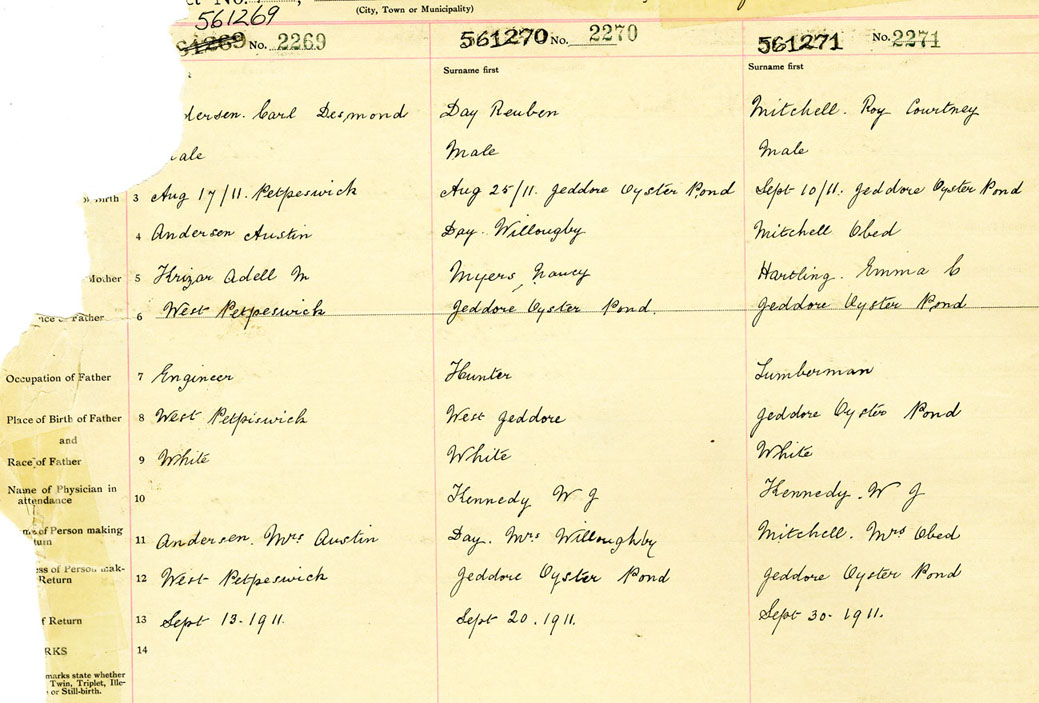 ct No.
(City, Town or Municipality)
561269
61269 No. 2269 561270 No. 2270 561271 No. 2271
Surname first Surname first
dersen. Carl Desmond Day Reuben Mitchell. Roy Courtney
ale Male Male
Birth 3 Aug 17/11. Petpeswick Aug 25/11. Jeddore Oyster Pond Sept 10/11. Jeddore Oyster Pond
4 Andersen Austin Day. Willougby Mitchell Obed
Mother 5 Krizar Adell M Myers, Nancy Hartling. Emma C
nce of Father 6 West Petpeswick Jeddore Oyster Pond. Jeddore Oyster Pond
Occupation of Father 7 Engineer Hunter Lumberman
Place of Birth of Father 8 West Petpiswick West Jeddore Jeddore Oyster Pond
and
Race of Father 9 White White White
Name of Physician in
attendance 10 Kennedy W J Kennedy. W J
me of Person making
turn 11 Andersen. Mrs Austin Day. Mrs Willoughby Mitchell. Mrs Obed
ess of Person mak-
Return 12 West Petpeswick Jeddore Oyster Pond Jeddore Oyster Pond
f Return 13 Sept 13-1911. Sept 20.1911. Sept 30-1911.
RKS 14
marks state whether
Twin, Triplet, Ille-
or Still-birth.